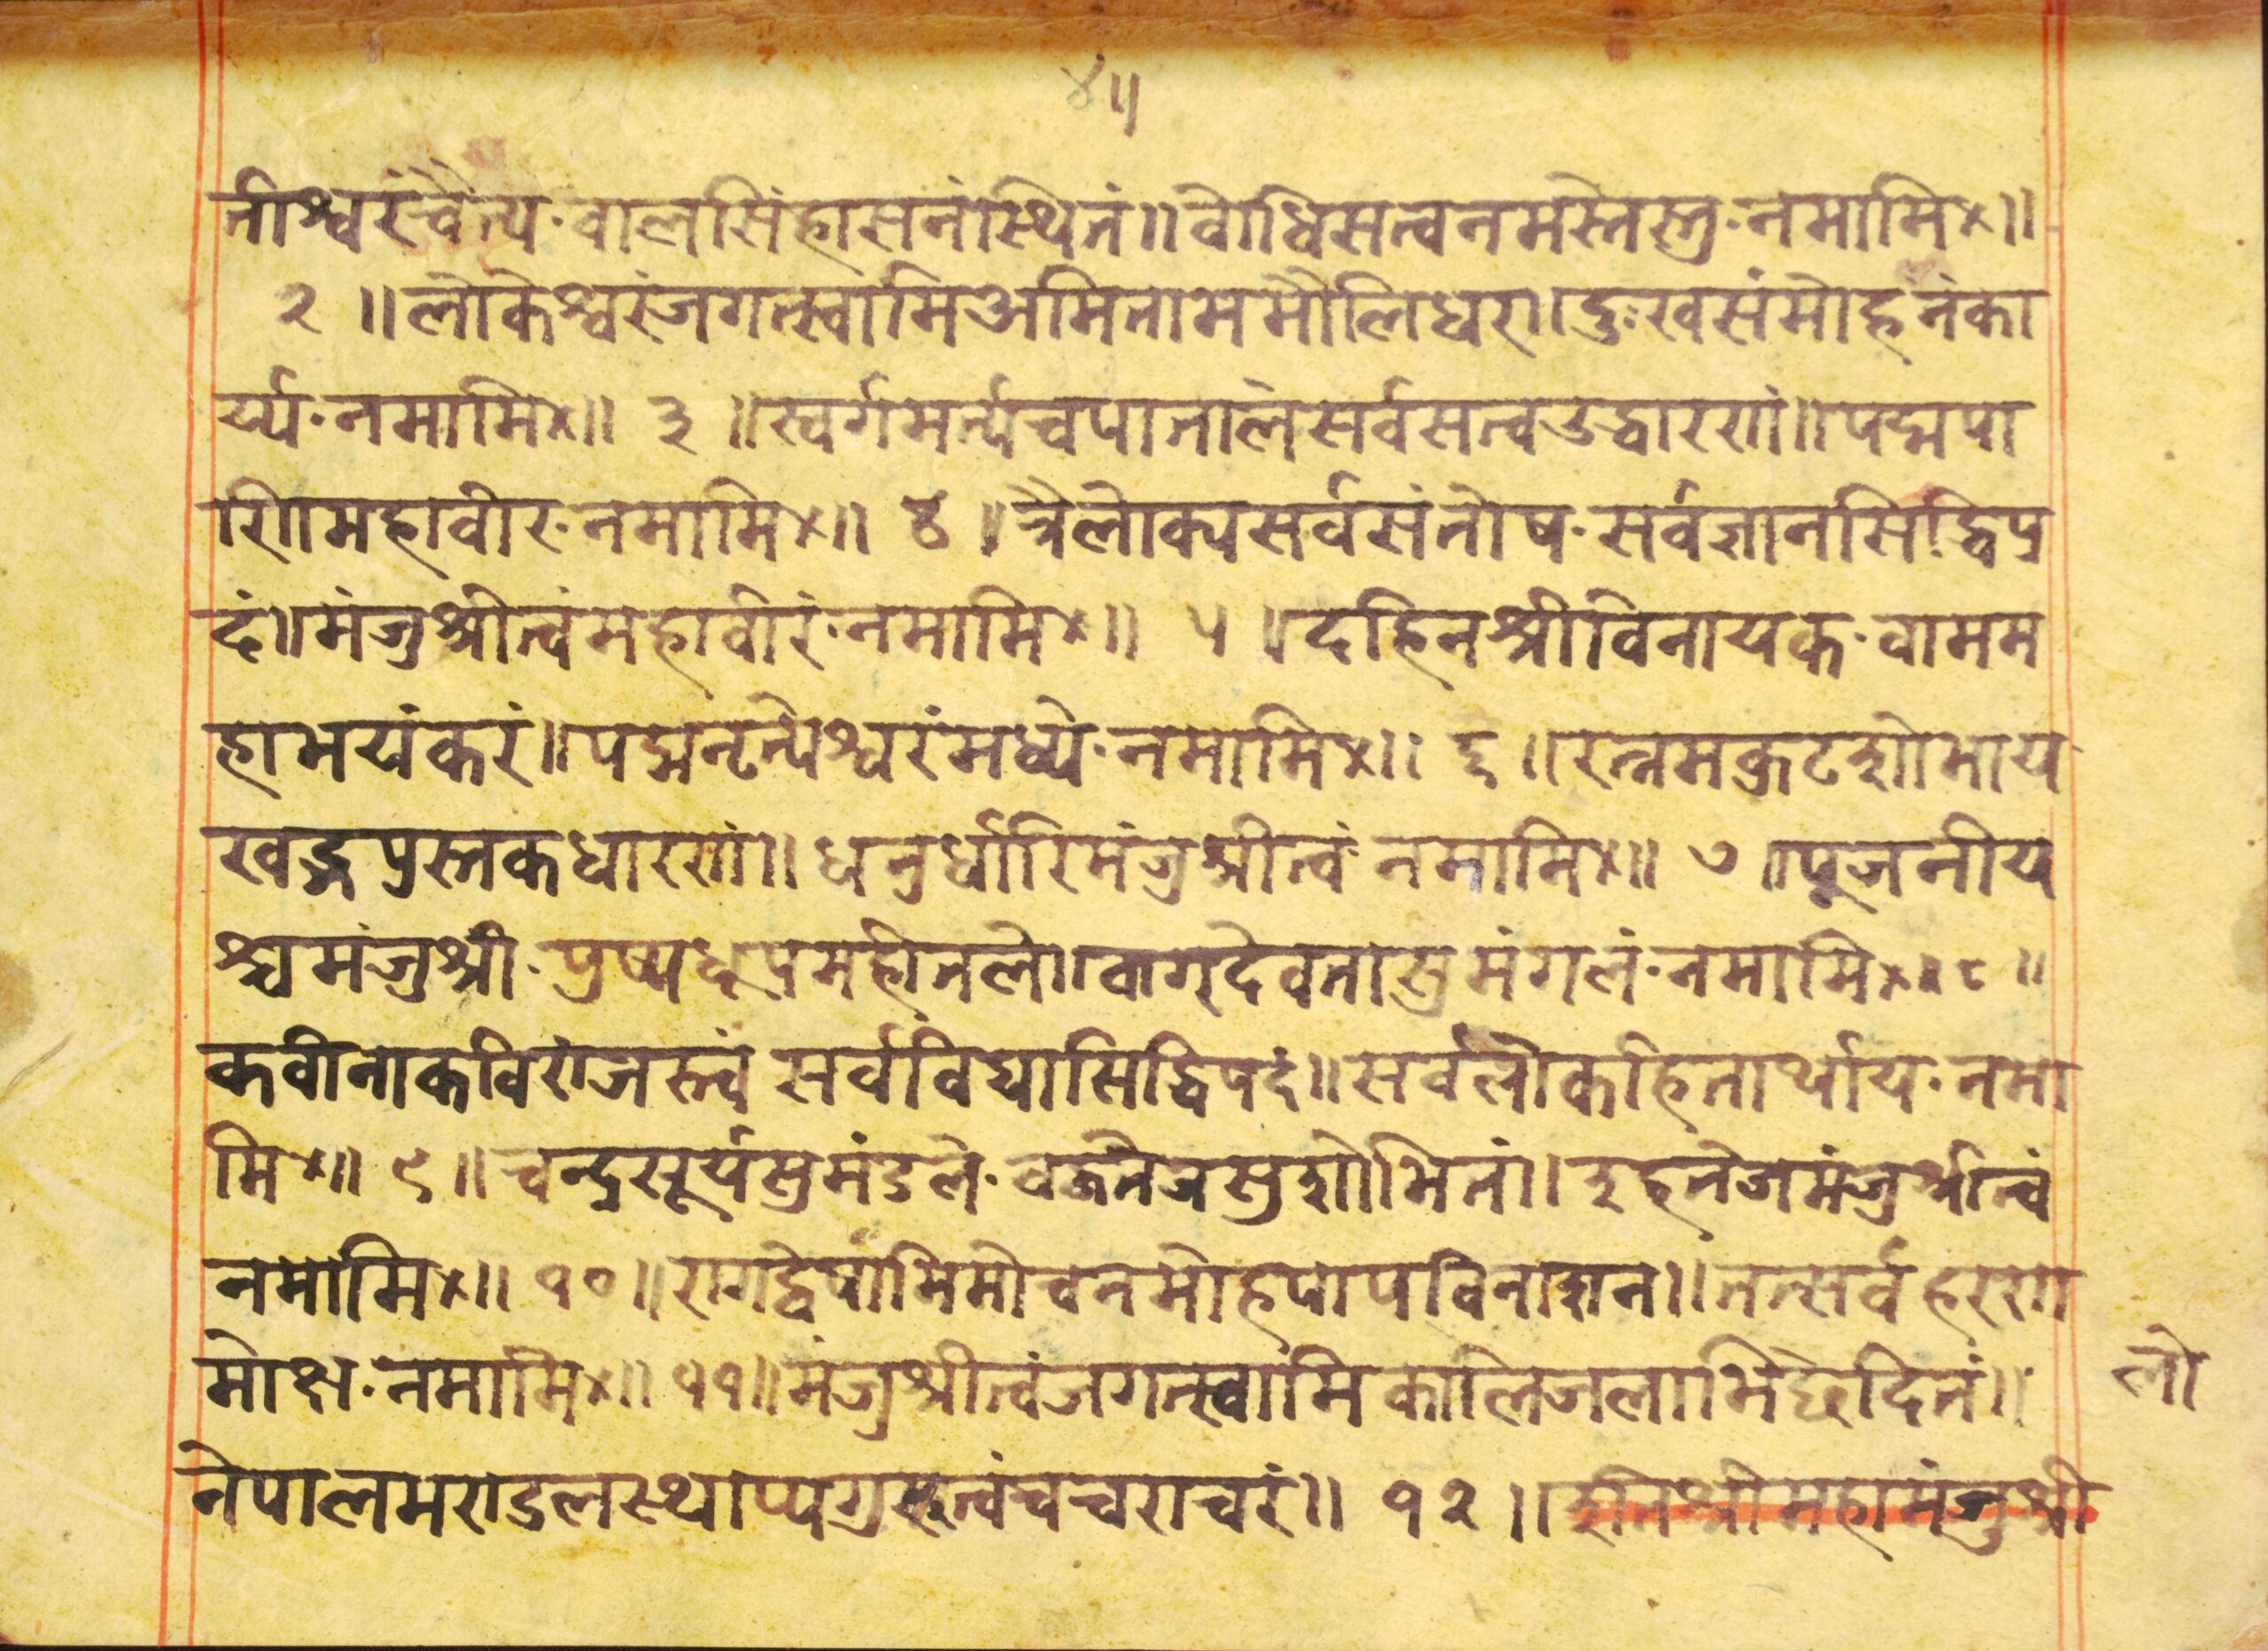 ४॥
तीश्वरंचैत्य·वालसिंहासनंस्थितं॥वोधिसत्वनमस्तेस्तु·नमामि×॥
२ ॥लोकेश्वरंजगत्स्वामिअमिताभमौलिधरा।दुःखसंमोहनंका
र्य्य·नमामि×॥ ३ ॥स्वर्गमर्त्यचपातालेसर्वसत्वउद्धारणं॥पद्मपा
णिमहावीर·नमामि×॥ ४ ॥त्रैलोक्यसर्वसंतोष·सर्वज्ञानसिद्धिप्र
दं॥मंजुश्रीत्वंमहावीरं·नमामि×॥ ५ ॥दहिनश्रीविनायक·वामम
हाभयंकरं॥पद्मनृत्येश्वरंमध्ये·नमामि×॥ ६ ॥रत्नमकुटशोभाय
खड्गपुस्तकधारणं॥धनुर्धारिमंजुश्रीत्वं·नमामि×॥ ७ ॥पूजनीय
श्चमंजुश्री·पुष्पधूपमहीतले॥वाग्देवतासुमंगलं·नमामि×॥८॥
कवीनाकविराजस्त्वं सर्वविद्यासिद्धिपदं॥सर्वलोकहितार्थाय·नमा
मि×॥ ९॥चन्द्रसूर्यसुमंडले·वज्रतेजसुशोभितां।इहतेजमंजुश्रीत्वं
नमामि×॥ १०॥रागद्वेषाभिमोचनमोहपापविनाशन॥तत्सर्वहरण
मोक्ष·नमामि×॥ ११॥मंजुश्रीत्वंजगत्स्वामिकालिजलाभिछेदितं॥ लो
नेपालमण्डलस्थाप्यगुरुत्वंचचराचरं॥ १२ ॥इतिश्रीमहामंजुश्री